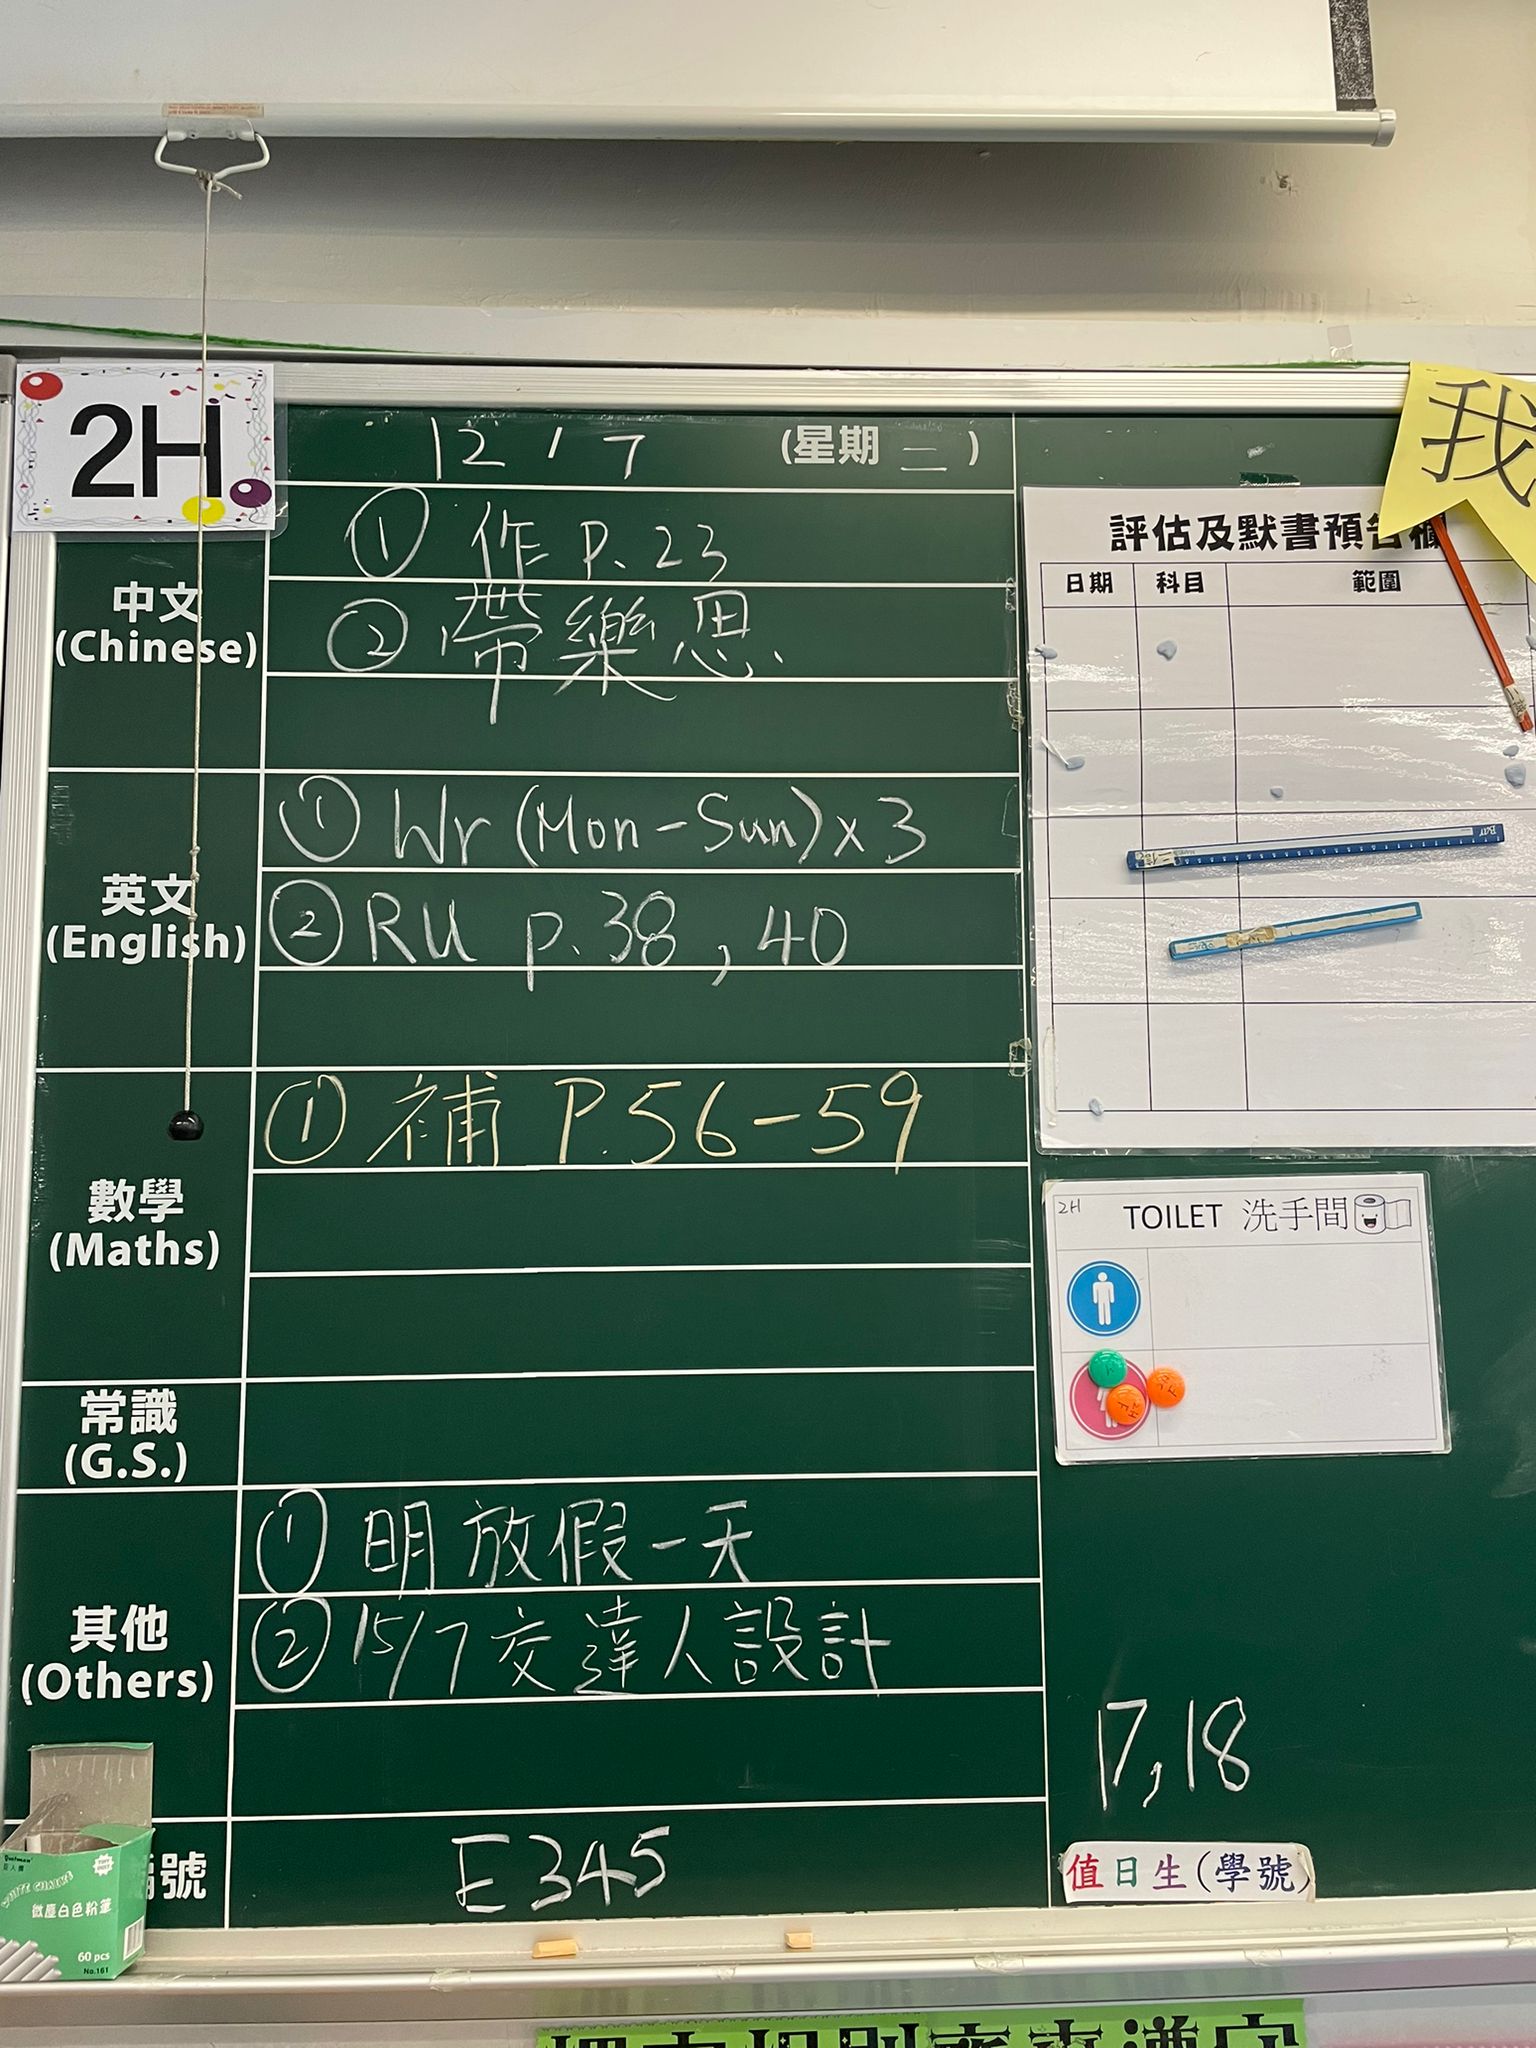 2H
12 / 7 (星期 二 )
中文
(Chinese)
① 作 P.23
② 帶樂思
英文
(English)
① Wr (Mon-Sun)x3
② RU p.38, 40
數學
(Maths)
① 補 P.56-59
常識
(G.S.)
其他
(Others)
① 明放假一天
② 15/7交達人設計
號
E345
我
評估及默書預告欄
日期 科目 範圍
2H
TOILET 洗手間
17,18
值日生(學號)
微塵白色粉筆
60 pcs
No.161